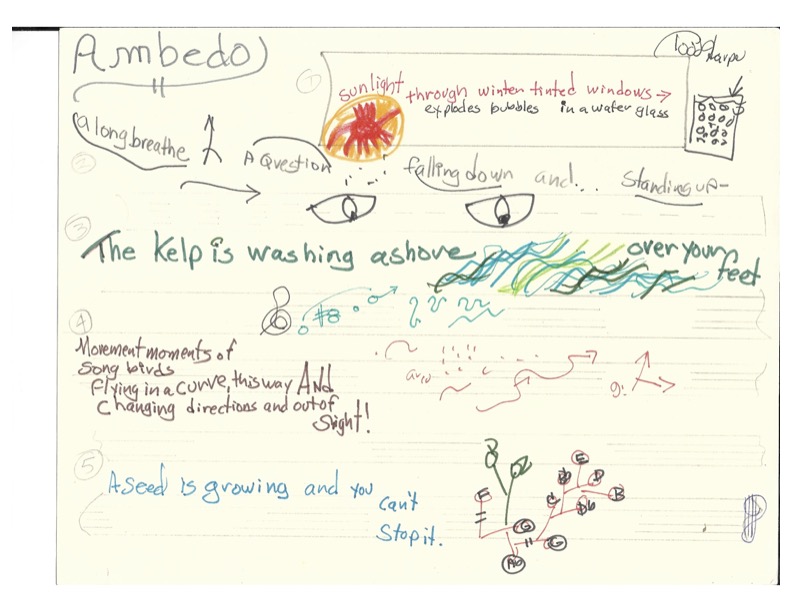 Ambedo
1
sunlight through winter tinted windows →
explodes bubbles in a water glass
2
a long breathe
A Question
falling down and... Standing up-
3
The Kelp is washing ashore over your
feet
#8
4
Movement moments of
song birds
flying in a curve, this way AND
Changing directions and out of
Sight!
5
A seed is growing and you
can't
Stop it.
F G Ab G C Db Db E D B